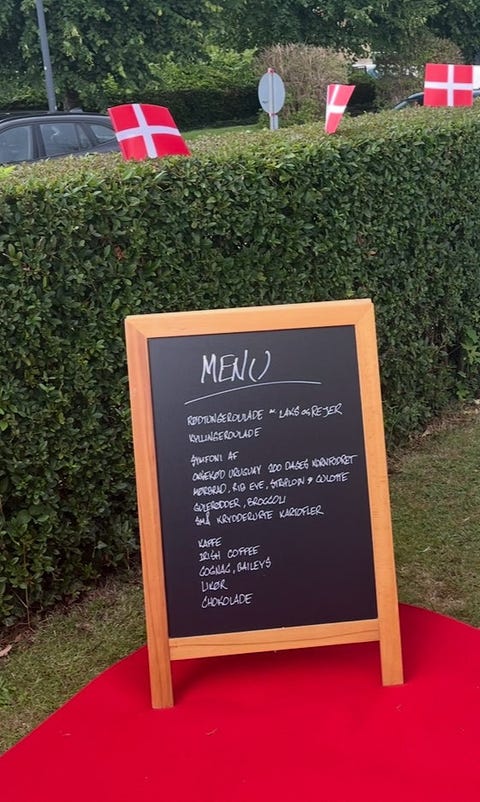 MENU
RØDTUNGEROULADE M. LAKS OG REJER
KYLLINGEROULADE
SYMFONI AF
OKSEKØD URUGUAY 200 DAGES KORNFODRET
MØRBRAD, RIB EYE, STRIPLOIN & CULOTTE
GULERØDDER, BROCCOLI
SMÅ KRYDDERURTE KARTOFLER
KAFFE
IRISH COFFEE
COGNAC, BAILEYS
LIKØR
CHOKOLADE